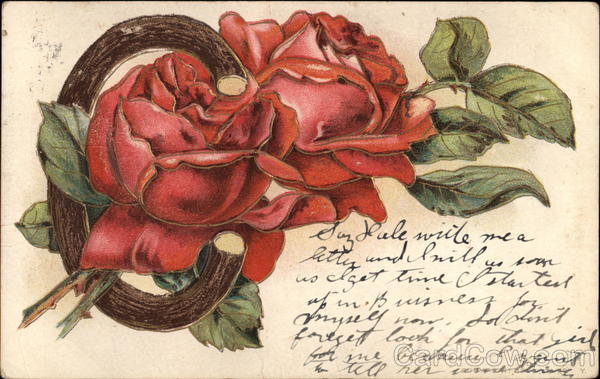 Say Hale write me a
letter and I will as soon
as I get time I started
up in Business for
myself now. So don't
forget look for that girl
for me because I want
to tell her something
CardCow.com